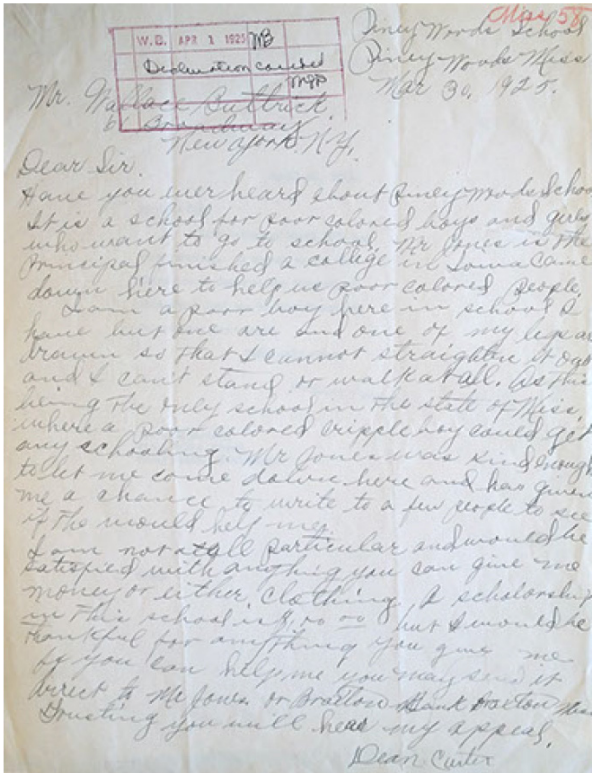 Miss 58
Piney Woods School
Piney Woods Miss
Mar 30, 1925.
W.B. APR 1 1925 WB
Declination
Mr. Wallace Buttrick
Broadway
New York N.Y.
Dear Sir.
Have you ever heard about Piney Woods School
It is a school for poor colored boys and girls
who want to go to school. Mr Jones is the
Principal finished a college in Iowa came
down here to help us poor colored people.
I am a poor boy here in school I
have but one are and one of my legs are
drawn so that I cannot straighten it out
and I can't stand or walk at all. As this
being the only school in the state of Miss.
where a poor colored cripple boy could get
any schooling. Mr Jones was kind enough
to let me come down here and has given
me a chance to write to a few people to see
if the would help me.
I am not atall particular and would be
satisfied with anything you can give me
money or either clothing. A scholarship
in this school is but I would be
thankful for anything you give me
If you can help me you may send it
direct to Mr Jones or Braxton Bank Braxton Miss
Trusting you will hear my appeal.
Dean Carter